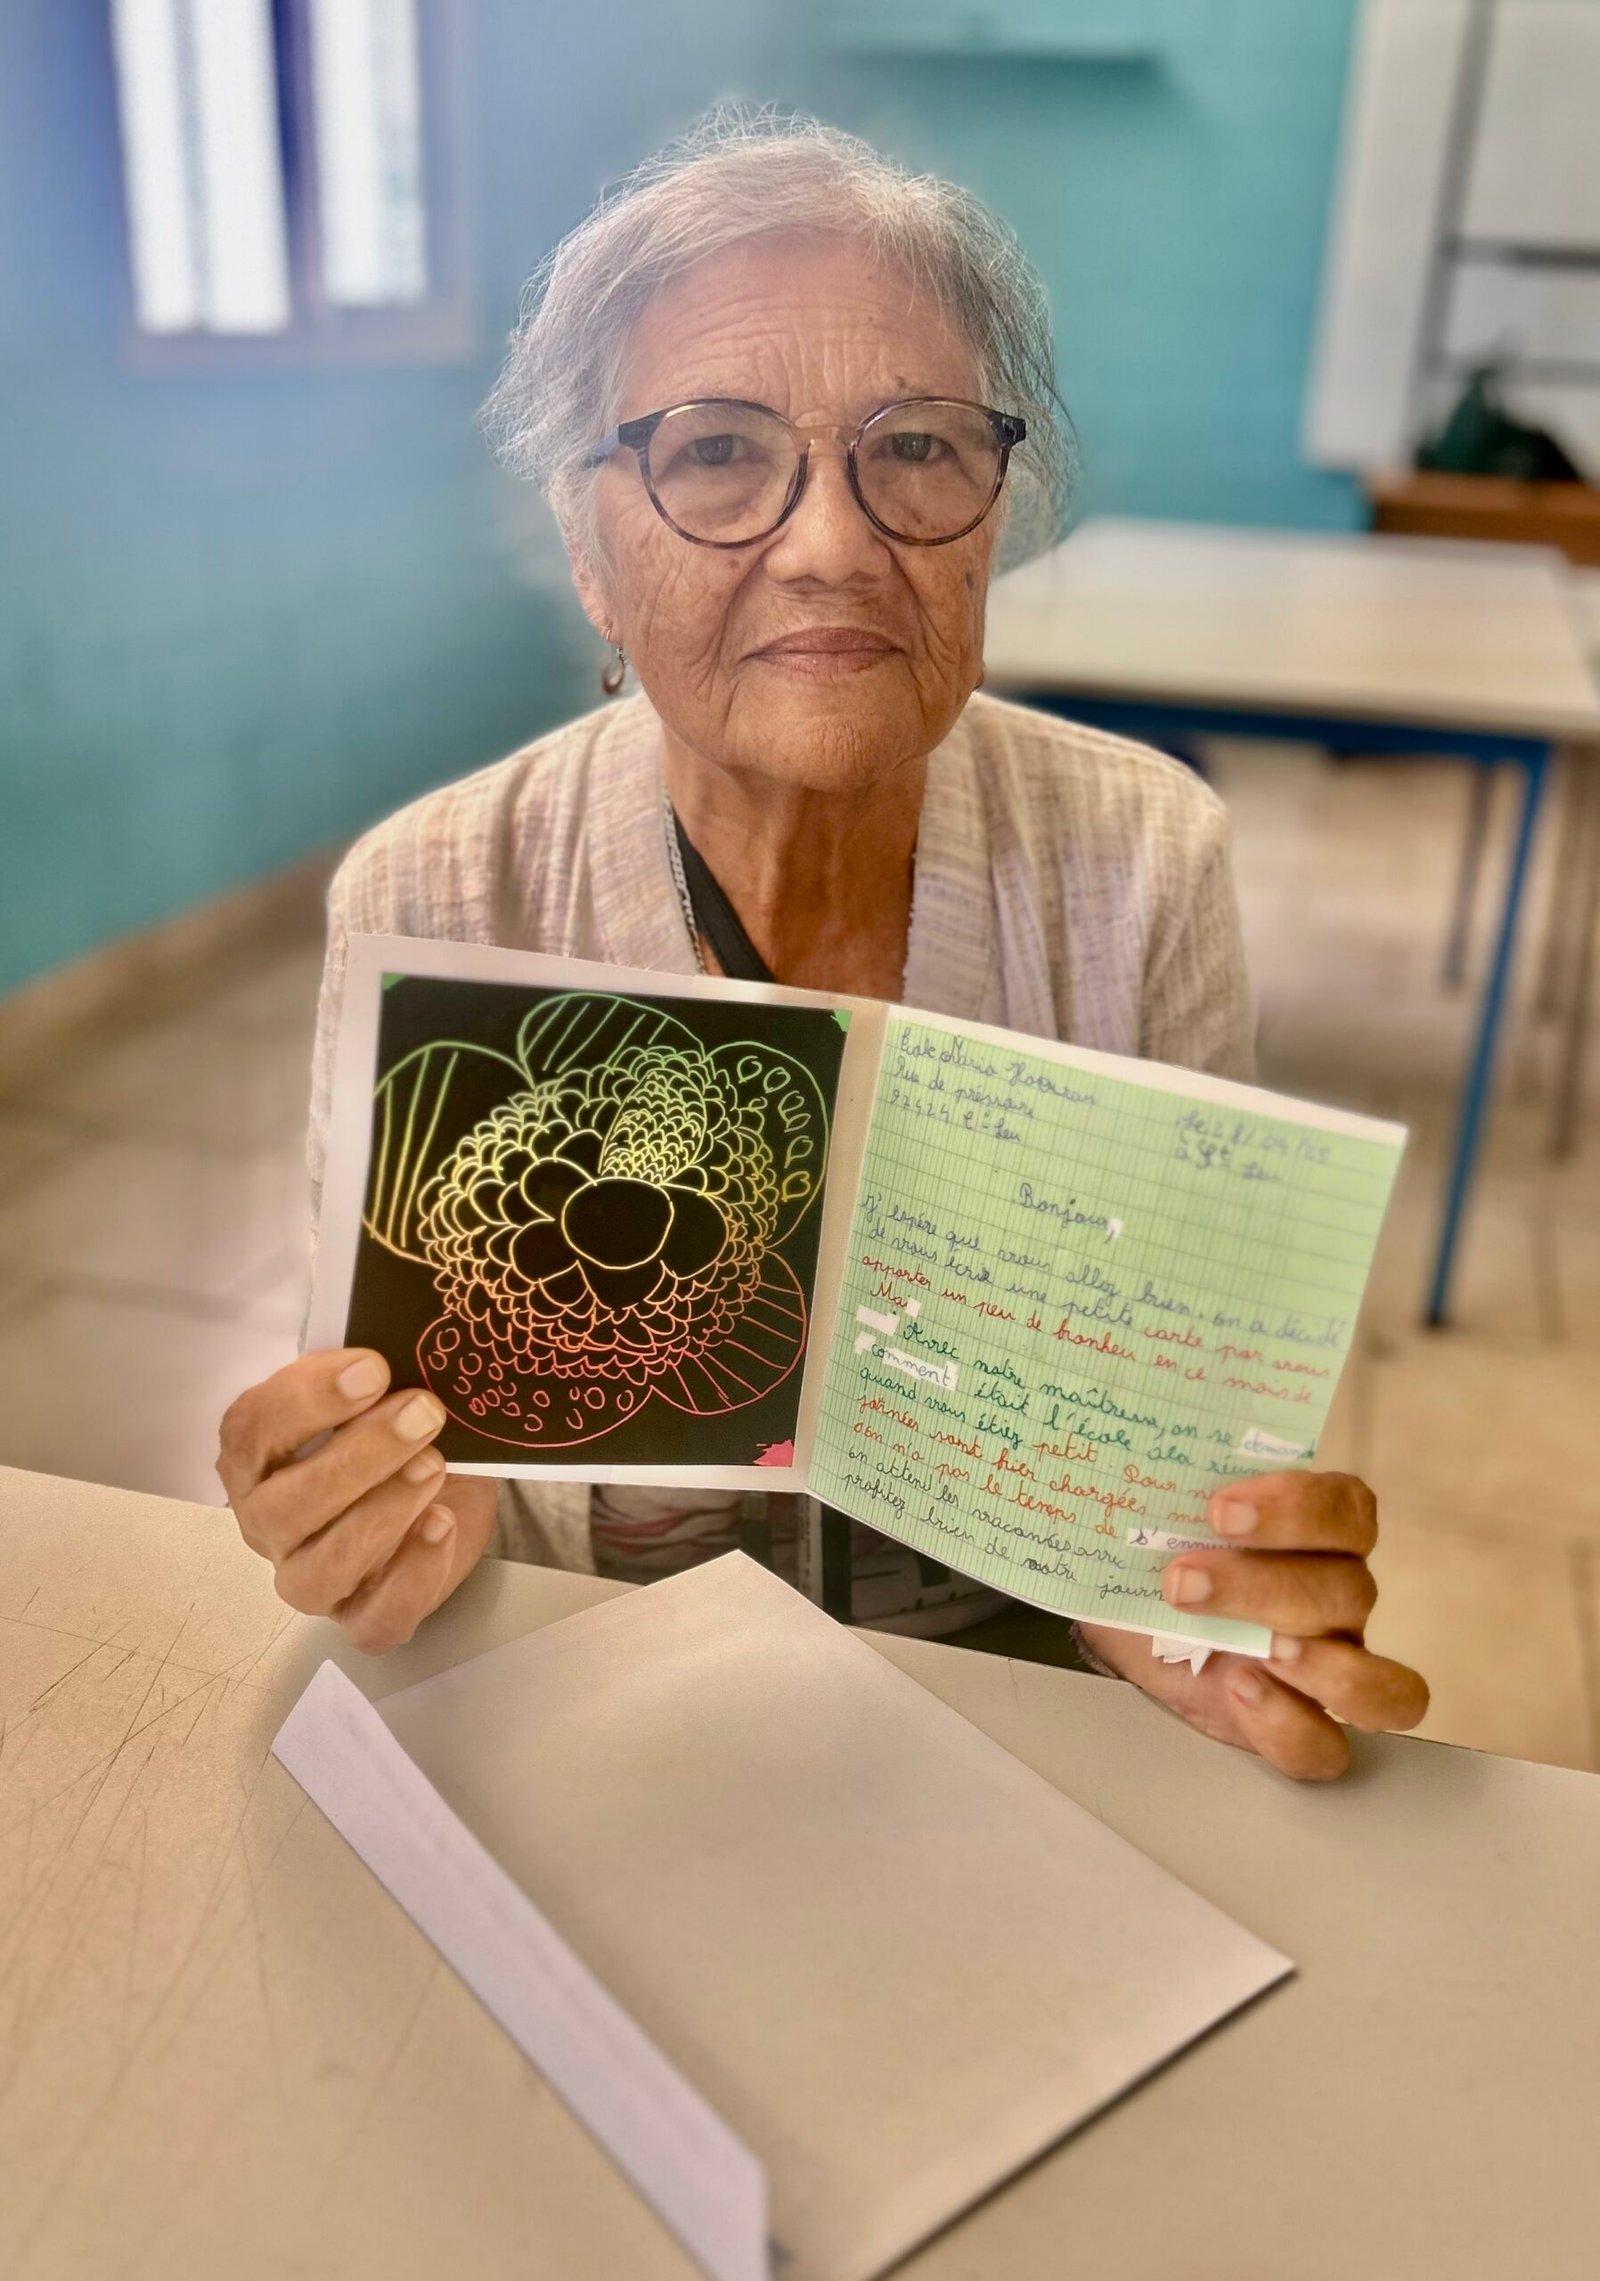 École Mario Hoarau
Rue de pressoire
97424 St-Leu
Le 28/04/25
à St Leu
Bonjour,
J'espère que vous allez bien. On a décidé
de vous écrire une petite carte par vous
apporter un peu de bonheu en ce mois de
Mai
Avec notre maîtresse, on se demande
comment était l'école à la réunion
quand vous étiez petit. Pour n
journées sont bien chargées ma
on n'a pas le temps de s'ennuyer
on attend les vacances avec i
profitez bien de votre journ